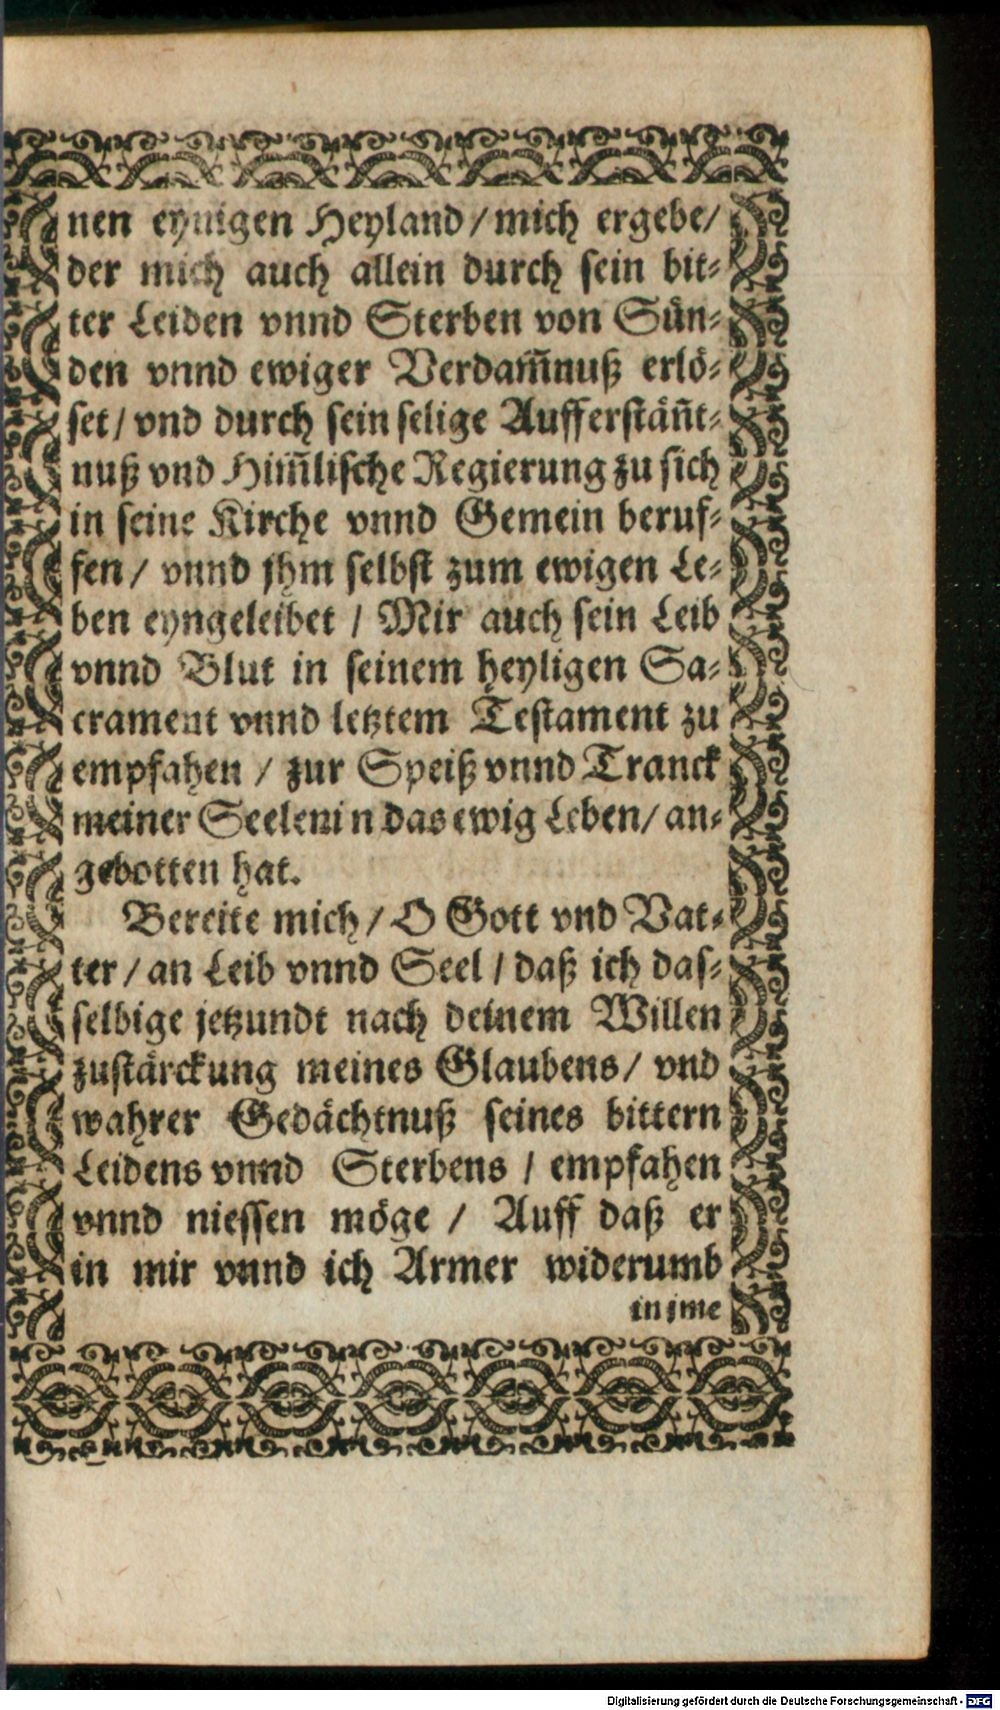 nen eynigen Heyland / mich ergebe /
der mich auch allein durch sein bit⸗
ter Leiden vnnd Sterben von Sün⸗
den vnnd ewiger Verdam̃nuß erlö⸗
set / vnd durch sein selige Aufferstän̄t⸗
nuß vnd Him̃lische Regierung zu sich
in seine Kirche vnnd Gemein beruf⸗
fen / vnnd jhm selbst zum ewigen Le⸗
ben eyngeleibet / Mir auch sein Leib
vnnd Blut in seinem heyligen Sa⸗
crament vnnd letztem Testament zu
empfahen / zur Speiß vnnd Tranck
meiner Seeleni n das ewig Leben / an⸗
gebotten hat.
Bereite mich / O Gott vnd Vat⸗
ter / an Leib vnnd Seel / daß ich das⸗
selbige jetzundt nach deinem Willen
zustärckung meines Glaubens / vnd
wahrer Gedächtnuß seines bittern
Leidens vnnd Sterbens / empfahen
vnnd niessen möge / Auff daß er
in mir vnnd ich Armer widerumb
in jme
Digitalisierung gefördert durch die Deutsche Forschungsgemeinschaft - DFG